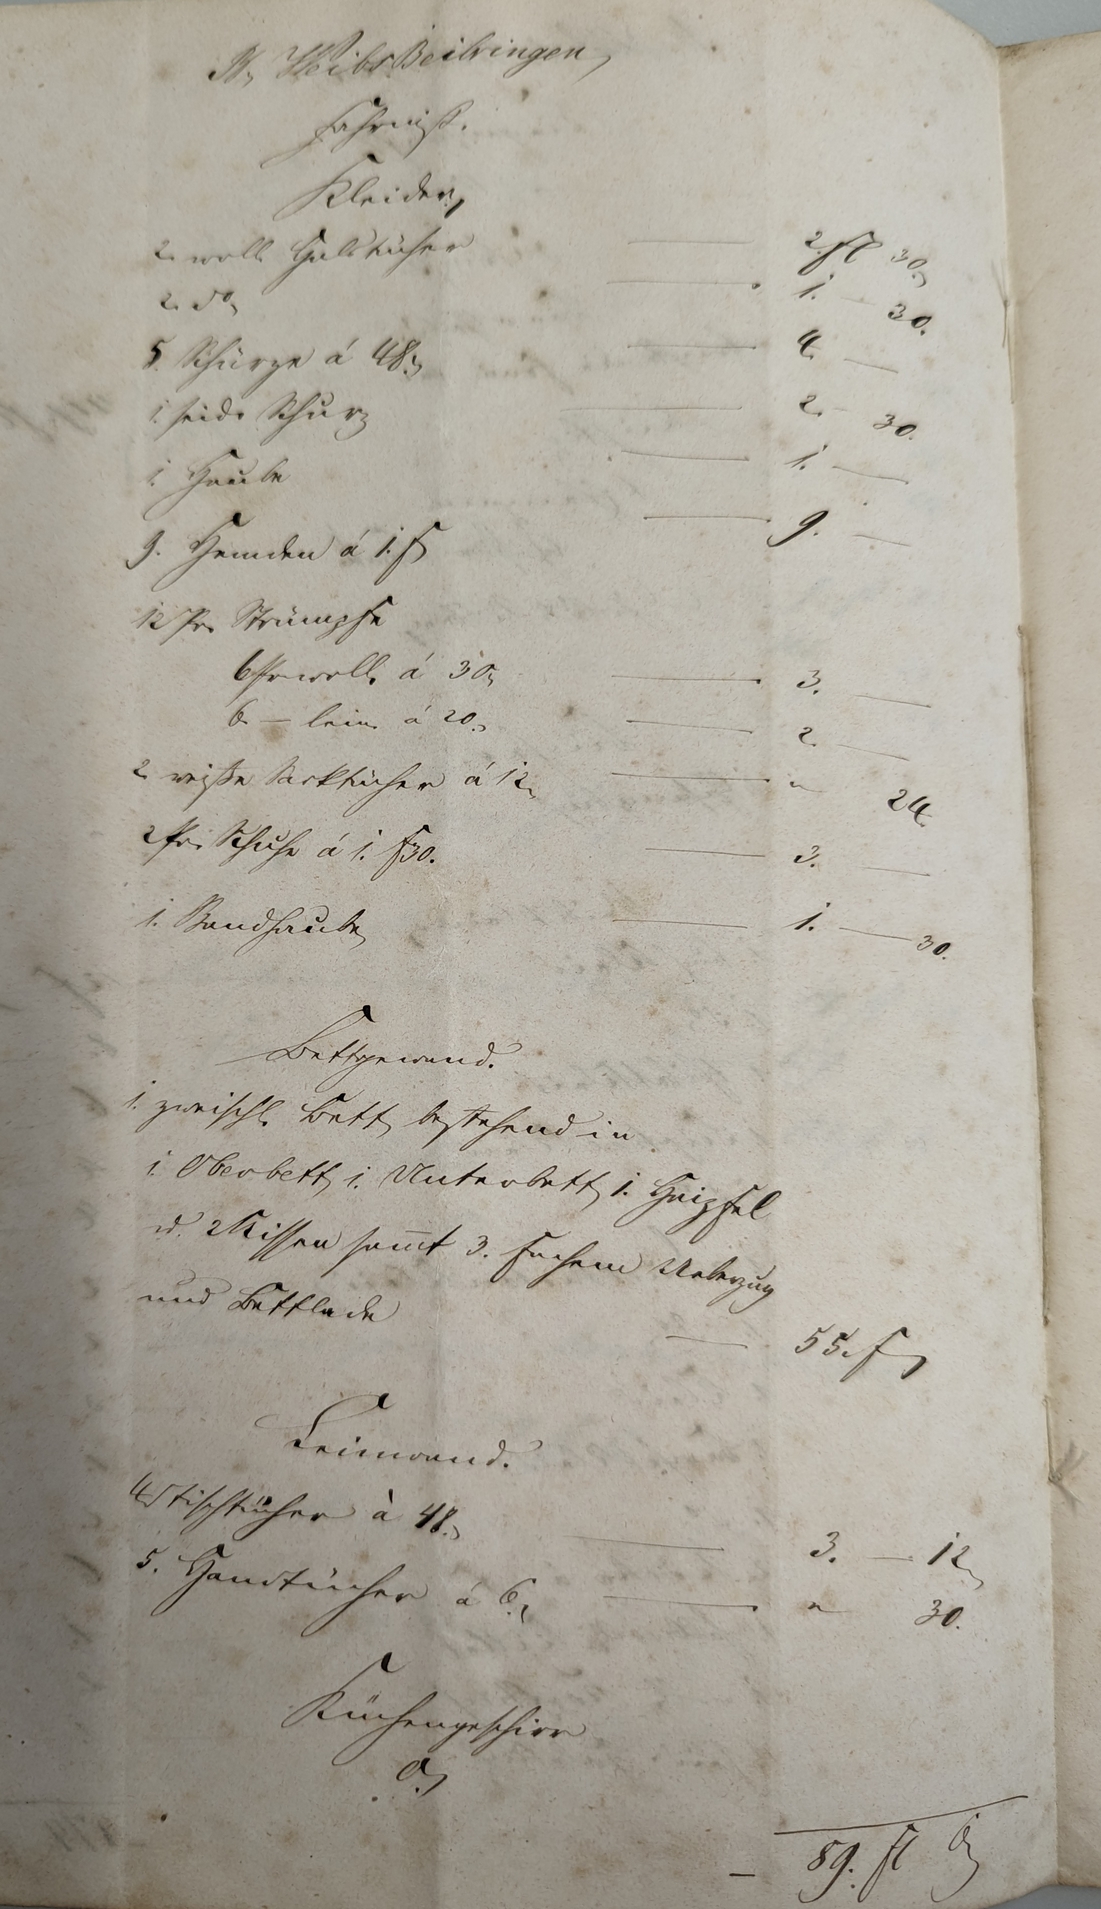 B, Weibs Beibringen,
Fahrniß.
Kleider,
2. woll. Halstücher — 2. fl 30.,
2. do, — 1. — 30.
5. Schürze á 48., — 4. —
1. seid. Schurz — 2. — 30.
1. Haube — 1. —
9. Hemden á 1. f — 9. —
12 Pr. Strümpfe
6 Pr. woll. á 30., — 3. —
6. — lein. á 20., — 2. —
2 weiße Sacktücher á 12., — " 24.
2 Pr. Schuhe á 1. f 30. — 3. —
1. Bandhaube, — 1. — 30.
Bettgewand.
1. zweischl. Bett, bestehend in
1. Oberbett, 1. Unterbett, 1. Haipfel
u. 2 Kissen sammt 3. fachem Ueberzug
und Bettlade — 55. f,
Leinwand.
4 Tischtücher à 48., — 3. — 12,
5. Handtücher á 6., — " 30.
Küchengeschirr
0,
— 89. fl 6,